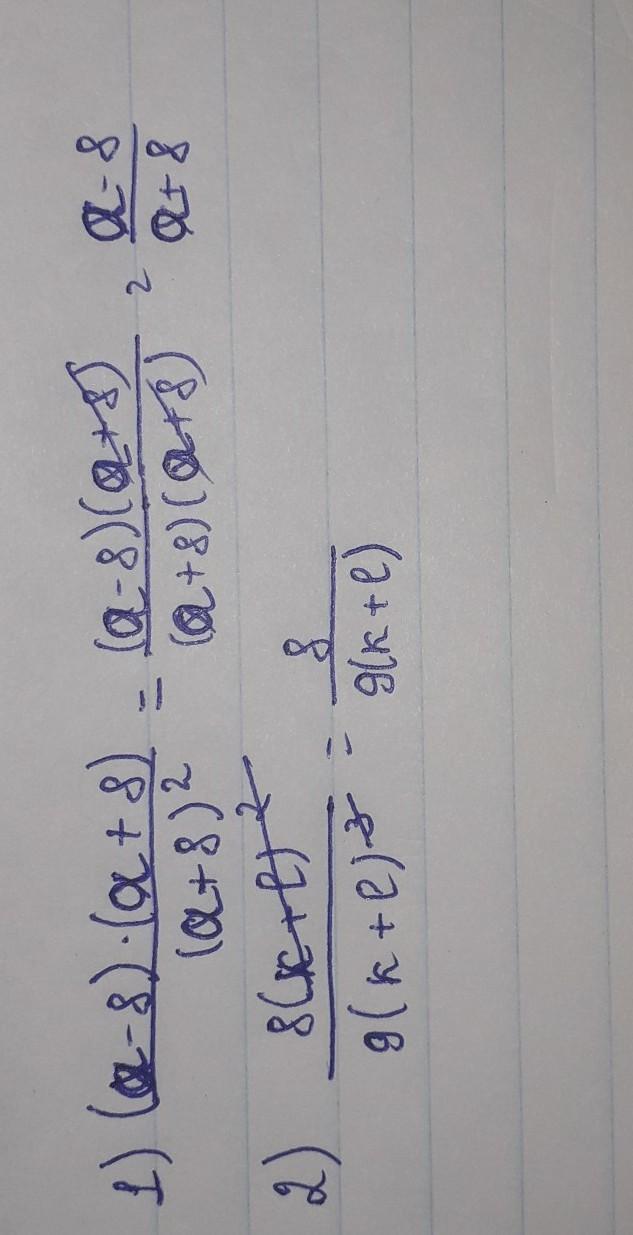 1) (a-8)·(a+8) / (a+8)² = (a-8)(a+8) / (a+8)(a+8) = a-8 / a+8
2) 8(k+l)² / 9(k+l)³ = 8 / 9(k+l)